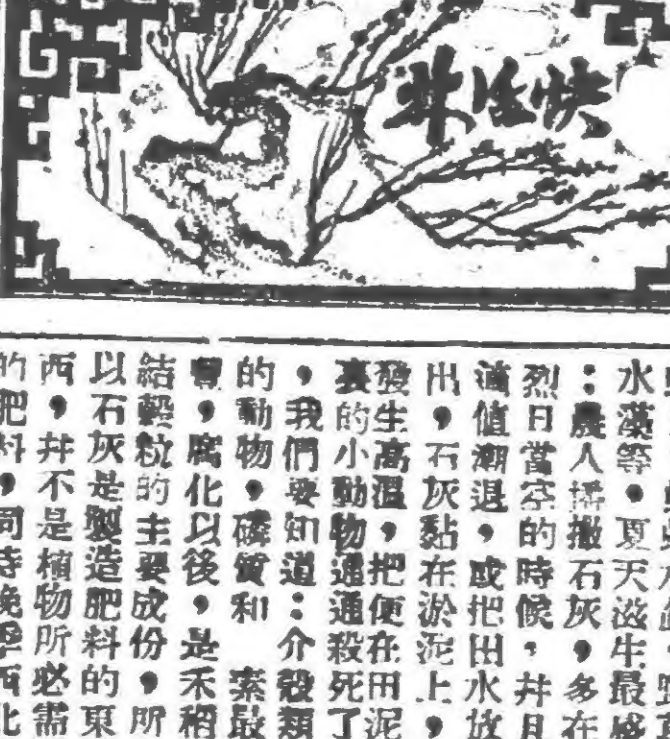 快活林
水藻等，夏天滋生最盛
：農人播撒石灰，多在
烈日當空的時候，并且
適值潮退，或把田水放
出，石灰黏在淤泥上，
發生高溫，把便在田泥
裏的小動物通通殺死了
，我們要知道：介殼類
的動物，磷質和 素最
，腐化以後，是禾稻
結穀粒的主要成份，所
以石灰是製造肥料的東
西，并不是植物所必需
的肥料，同時晚季西北